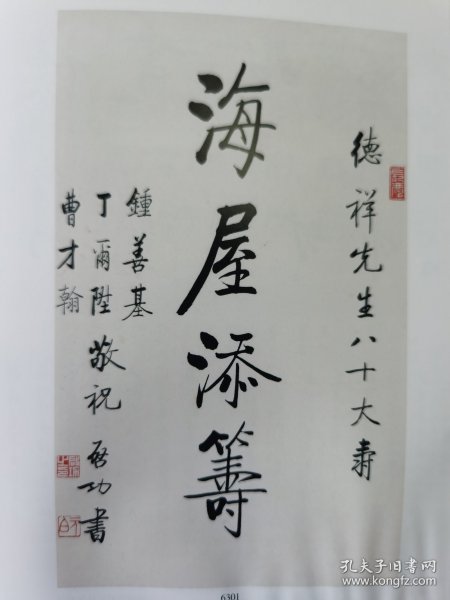 德祥先生八十大寿
海屋添籌
鍾善基
丁爾陞
曹才翰
敬祝
啓功書
6301
孔夫子旧书网
www.kongfz.com